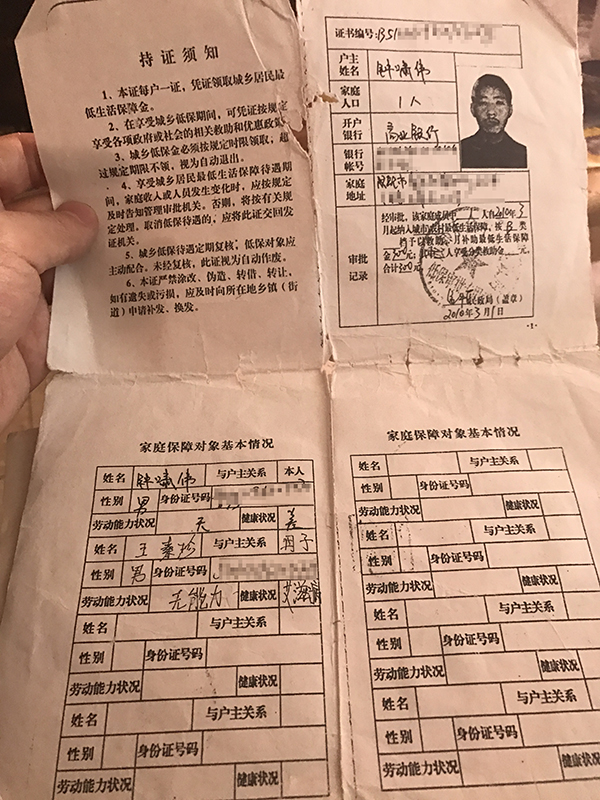 持证须知
1、本证每户一证，凭证领取城乡居民最
低生活保障金。
2、在享受城乡低保期间，可凭证按规定
享受各项政府或社会的相关救助和优惠政策
3、城乡低保金必须按规定时限领取，超
过规定期限不领，视为自动退出。
4、享受城乡居民最低生活保障待遇期
间，家庭收入或人员发生变化时，应按规定
及时告知管理审批机关。否则，将按有关规
定处理。取消低保待遇的，应将此证交回发
证机关。
5、城乡低保待遇定期复核，低保对象应
主动配合。未经复核，此证视为自动作废。
6、本证严禁涂改、伪造、转借、转让，
如有遗失或污损，应及时向所在地乡镇（街
道）申请补发、换发。
证书编号：B51
户主
姓名
家庭
人口
1人
开户
银行
商业银行
银行
帐号
家庭
地址
审批
记录
经审批，该家庭成员中 1 人自2010年3
月起纳入城市 最低生活保障，按B类
月补助最低生活保障
人享受分类救助金 元，
合计 元
民政局（盖章）
2010年3月1日
-1-
家庭保障对象基本情况
姓名 与户主关系 本人
性别 男 身份证号码
劳动能力状况 健康状况 差
姓名 王 松 与户主关系
性别 男 身份证号码
劳动能力状况 无能力 健康状况
姓名 与户主关系
性别 身份证号码
劳动能力状况 健康状况
姓名 与户主关系
性别 身份证号码
劳动能力状况 健康状况
家庭保障对象基本情况
姓名 与户主关系
性别 身份证号码
劳动能力状况 健康状况
姓名 与户主关系
性别 身份证号码
劳动能力状况 健康状况
姓名 与户主关系
性别 身份证号码
劳动能力状况 健康状况
姓名 与户主关系
性别 身份证号码
劳动能力状况 健康状况